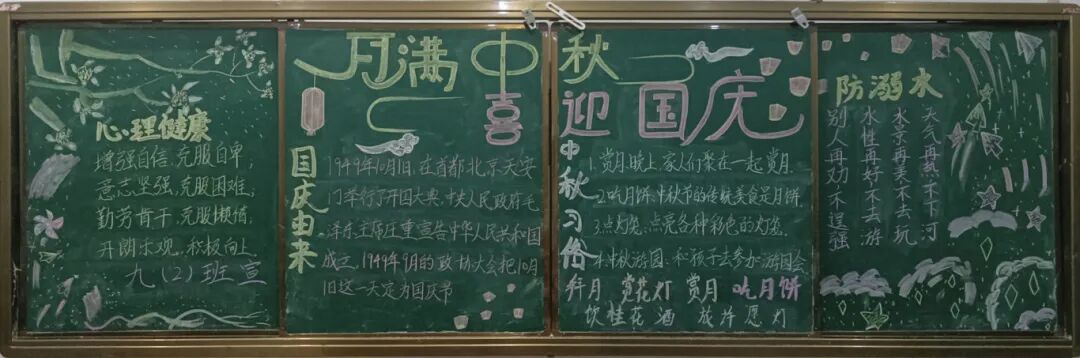 心理健康
增强自信,克服自卑;
意志坚强,克服困难;
勤劳肯干,克服懒惰,
开朗乐观,积极向上。
九(2)班宣
月满中秋
喜迎国庆
国庆由来
1949年10月1日,在首都北京天安
门举行了开国大典,中央人民政府毛
泽东主席庄重宣告中华人民共和国
成立,1949年9月的政协大会把10月
1日这一天定为国庆节
中秋习俗
1.赏月:晚上家人们聚在一起赏月.
2.吃月饼:中秋节的传统美食是月饼.
3.点灯笼:点亮各种彩色的灯笼.
4.中秋游园:和孩子去参加游园会
拜月 赏花灯 赏月 吃月饼
饮桂花酒 放许愿灯
防溺水
天气再热不下河
水景再美不去玩
水性再好不去游
别人再劝不逞强